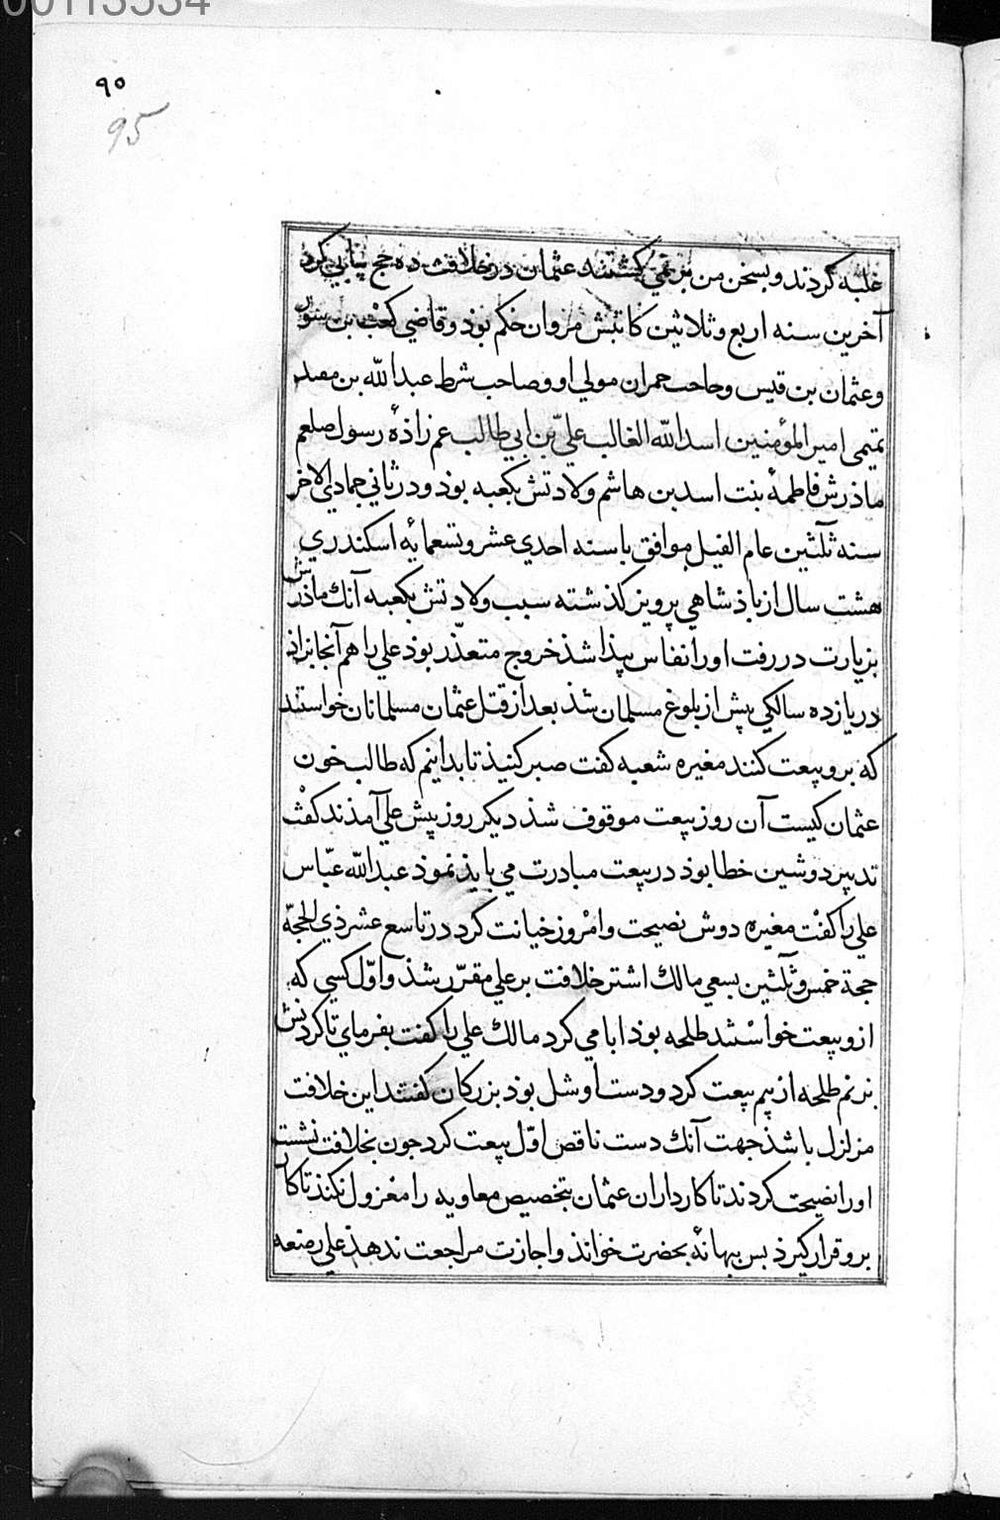 00113534
٩٥
95
غلبه کردند و بسخن من بر نمی کشتند عثمان در خلافت ده حج پیاپی کرد
آخرین سنه اربع و ثلاثین کاتبش مروان حکم بوذ و قاضی کعب بن سور
و عثمان بن قیس و حاجب حمران مولی او و صاحب شرط عبدالله بن معبد
تمیمی امیر المؤمنین اسد الله الغالب علیّ بن ابی طالب عم زاذهٔ رسول صلعم
ماذرش فاطمهٔ بنت اسد بن هاشم ولادتش بکعبه بوذ و در ثانی جمادی الاخر
سنه ثلثین عام الفیل موافق با سنه احدی عشر و تسعمایه اسکندری
هشت سال از پاذشاهی پرویز کذشته سبب ولادتش بکعبه آنك ماذرش
بزیارت در رفت اورا نفاس پیذا شذ خروج متعذّر بوذ علی را هم آنجا بزاذ
در یازده سالکی پیش از بلوغ مسلمان شذ بعد از قتل عثمان مسلمانان خواستند
که برو بیعت کنند مغیره شعبه کفت صبر کنیذ تا بدانیم که طالب خون
عثمان کیست آن روز بیعت موقوف شذ دیکر روز پیش علی آمذند کفت
تدبیر دوشین خطا بوذ در بیعت مبادرت می بایذ نموذ عبدالله عبّاس
علی را کفت مغیره دوش نصیحت و امروز خیانت کرد در تاسع عشر ذی الحجّة
حجة خمس و ثلثین بسعی مالك اشتر خلافت بر علی مقرّر شذ و اوّل کسی که
ازو بیعت خواستند طلحه بوذ ابا می کرد مالك علی را کفت بفرمای تا کردنش
بزنم طلحه از بیم بیعت کرد و دست او شل بوذ بزرکان کفتند این خلافت
مزلزل باشذ جهت آنك دست ناقص اوّل بیعت کرد جون بخلافت نشست
اورا نصیحت کردند تا کارداران عثمان بتخصیص معاویه را معزول نکنذ تا کار
برو قرار کیرذ بس ببهانهٔ بحضرت خواند و اجازت مراجعت ندهذ علی رضعه